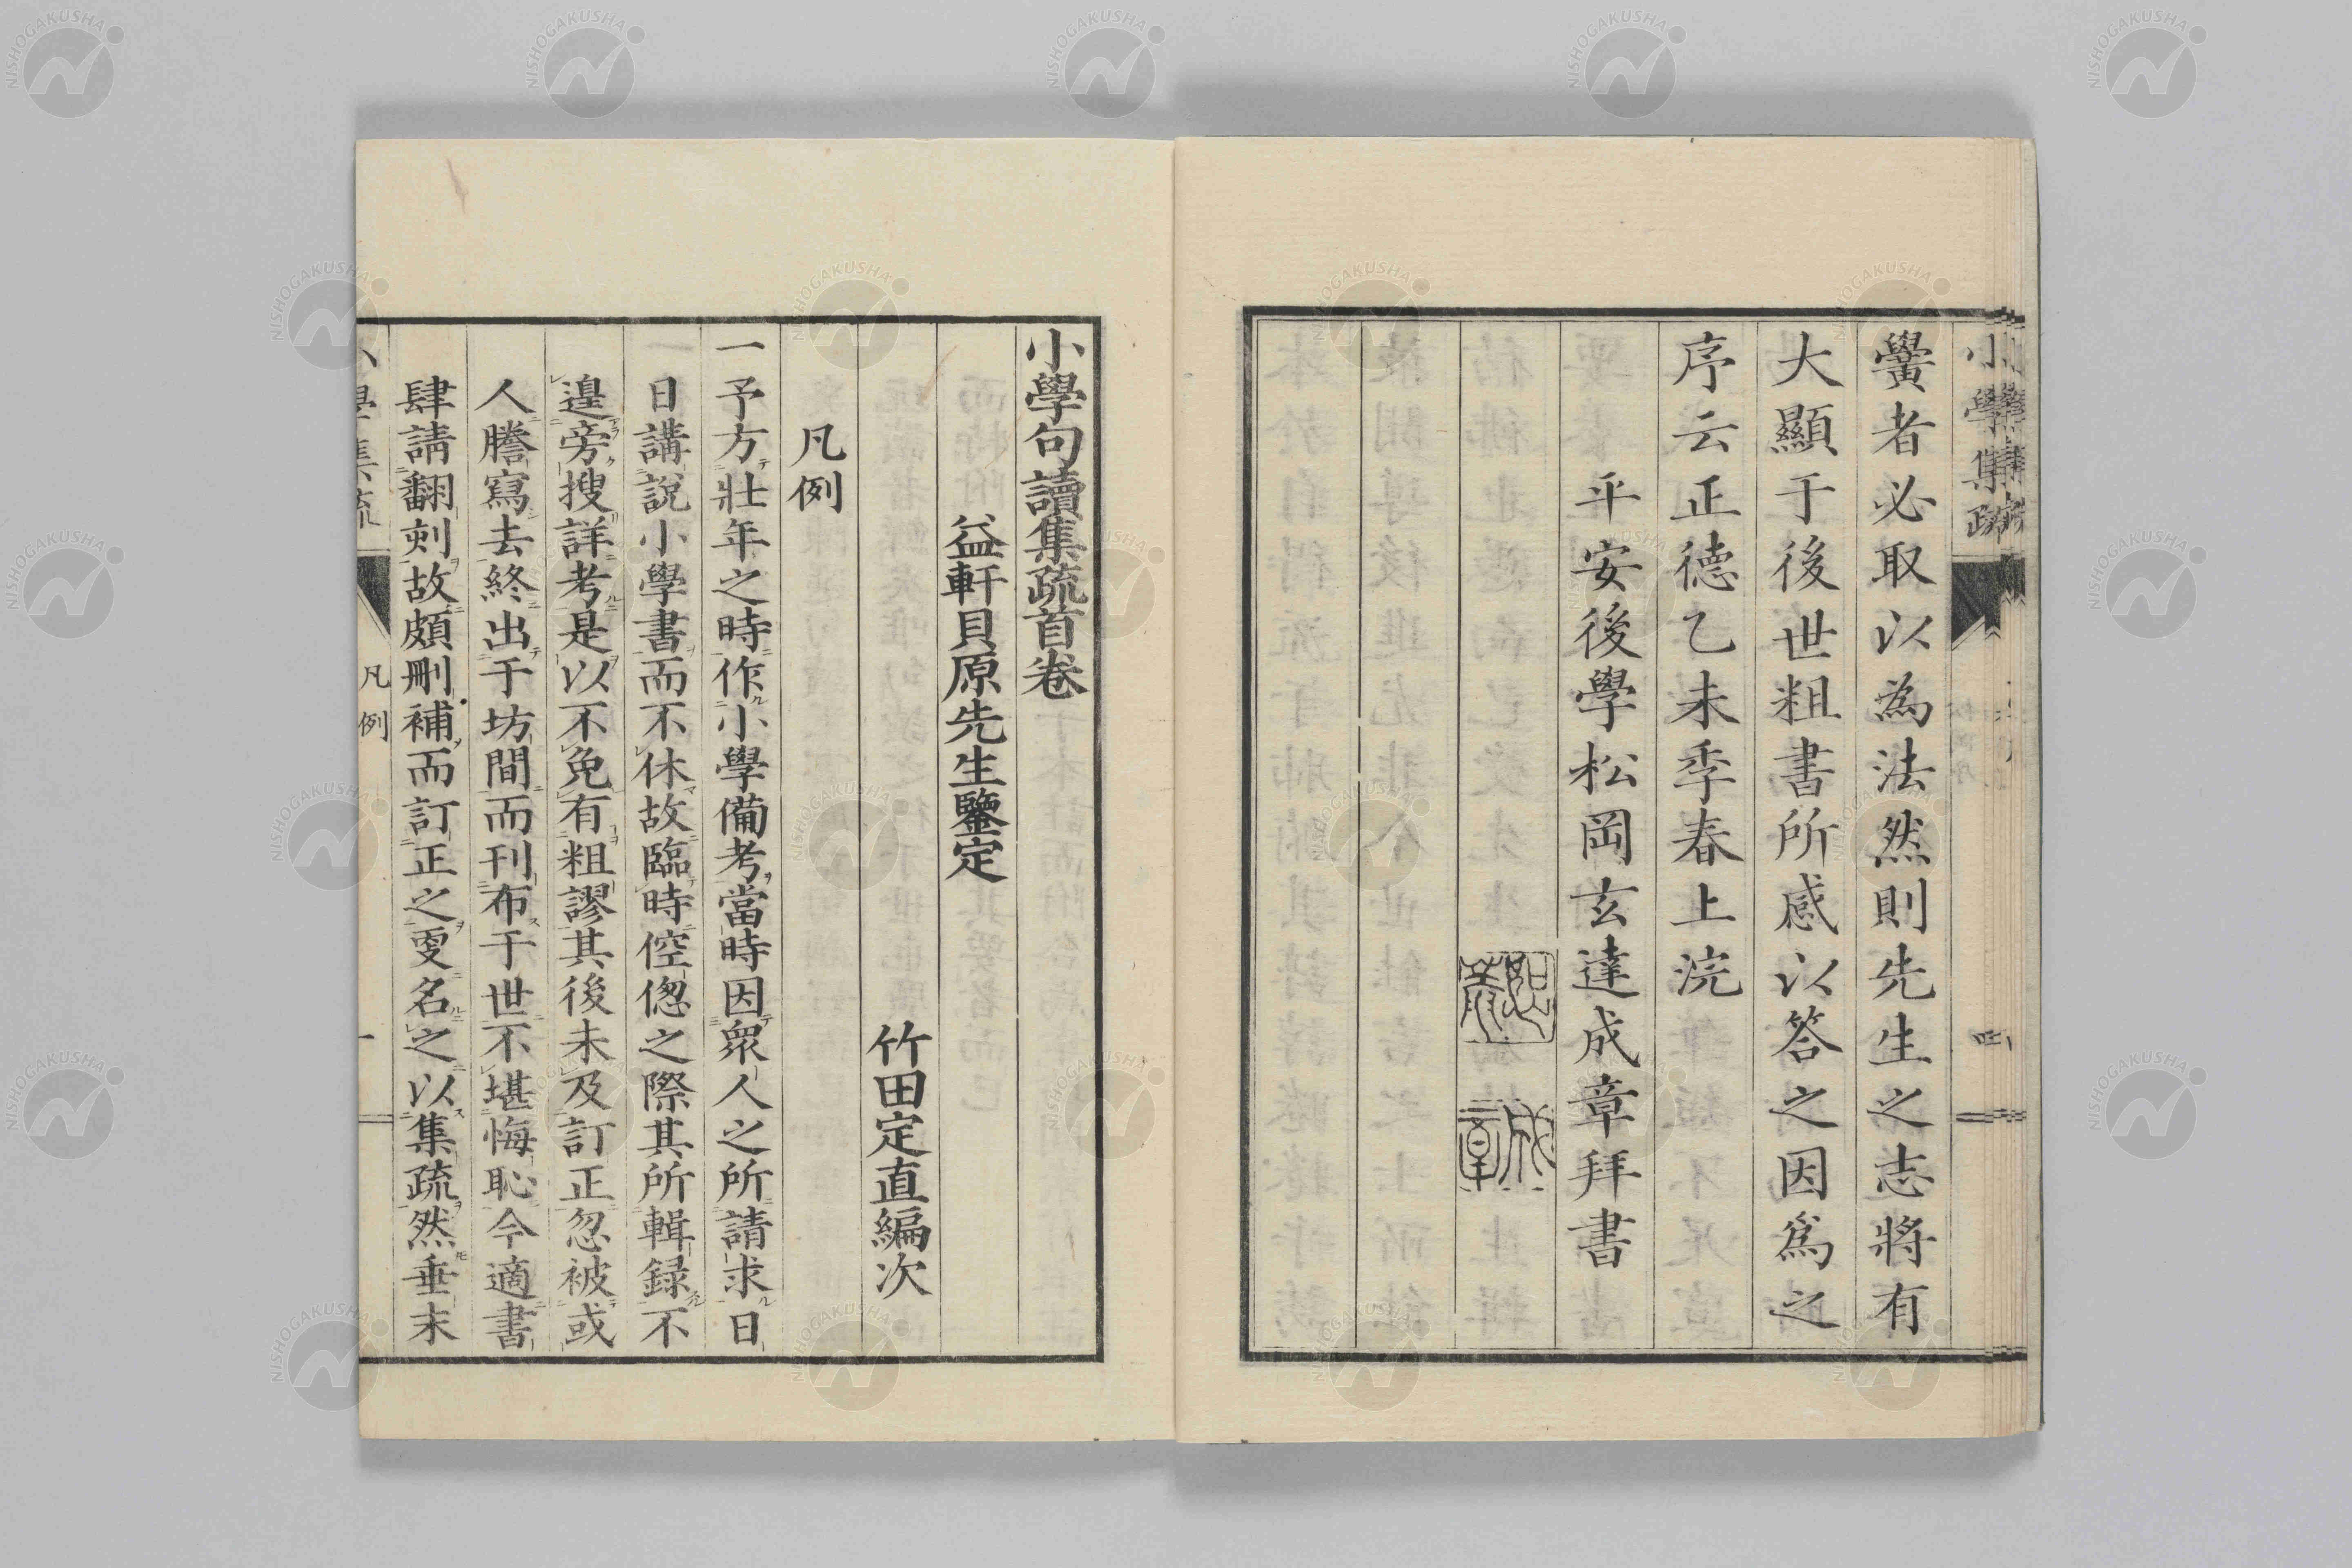 黌者必取以為法然則先生之志將有
大顯于後世粗書所感以答之因爲之
序云正德乙未季春上浣
平安後學松岡玄達成章拜書
成章
小學句讀集疏首卷
益軒貝原先生鑒定
竹田定直編次
凡例
一予方壯年之時作小學備考當時因衆人之所請求日
日講説小學書而不休故臨時倥偬之際其所輯録不
遑旁搜詳考是以不免有粗謬其後未及訂正忽被或
人謄寫去終出于坊間而刊布于世不堪悔恥今適書
肆請翻刻故頗刪補而訂正之更名之以集疏然垂末
小學集疏
凡例
一
小學集疏
四
NISHOGAKUSHA